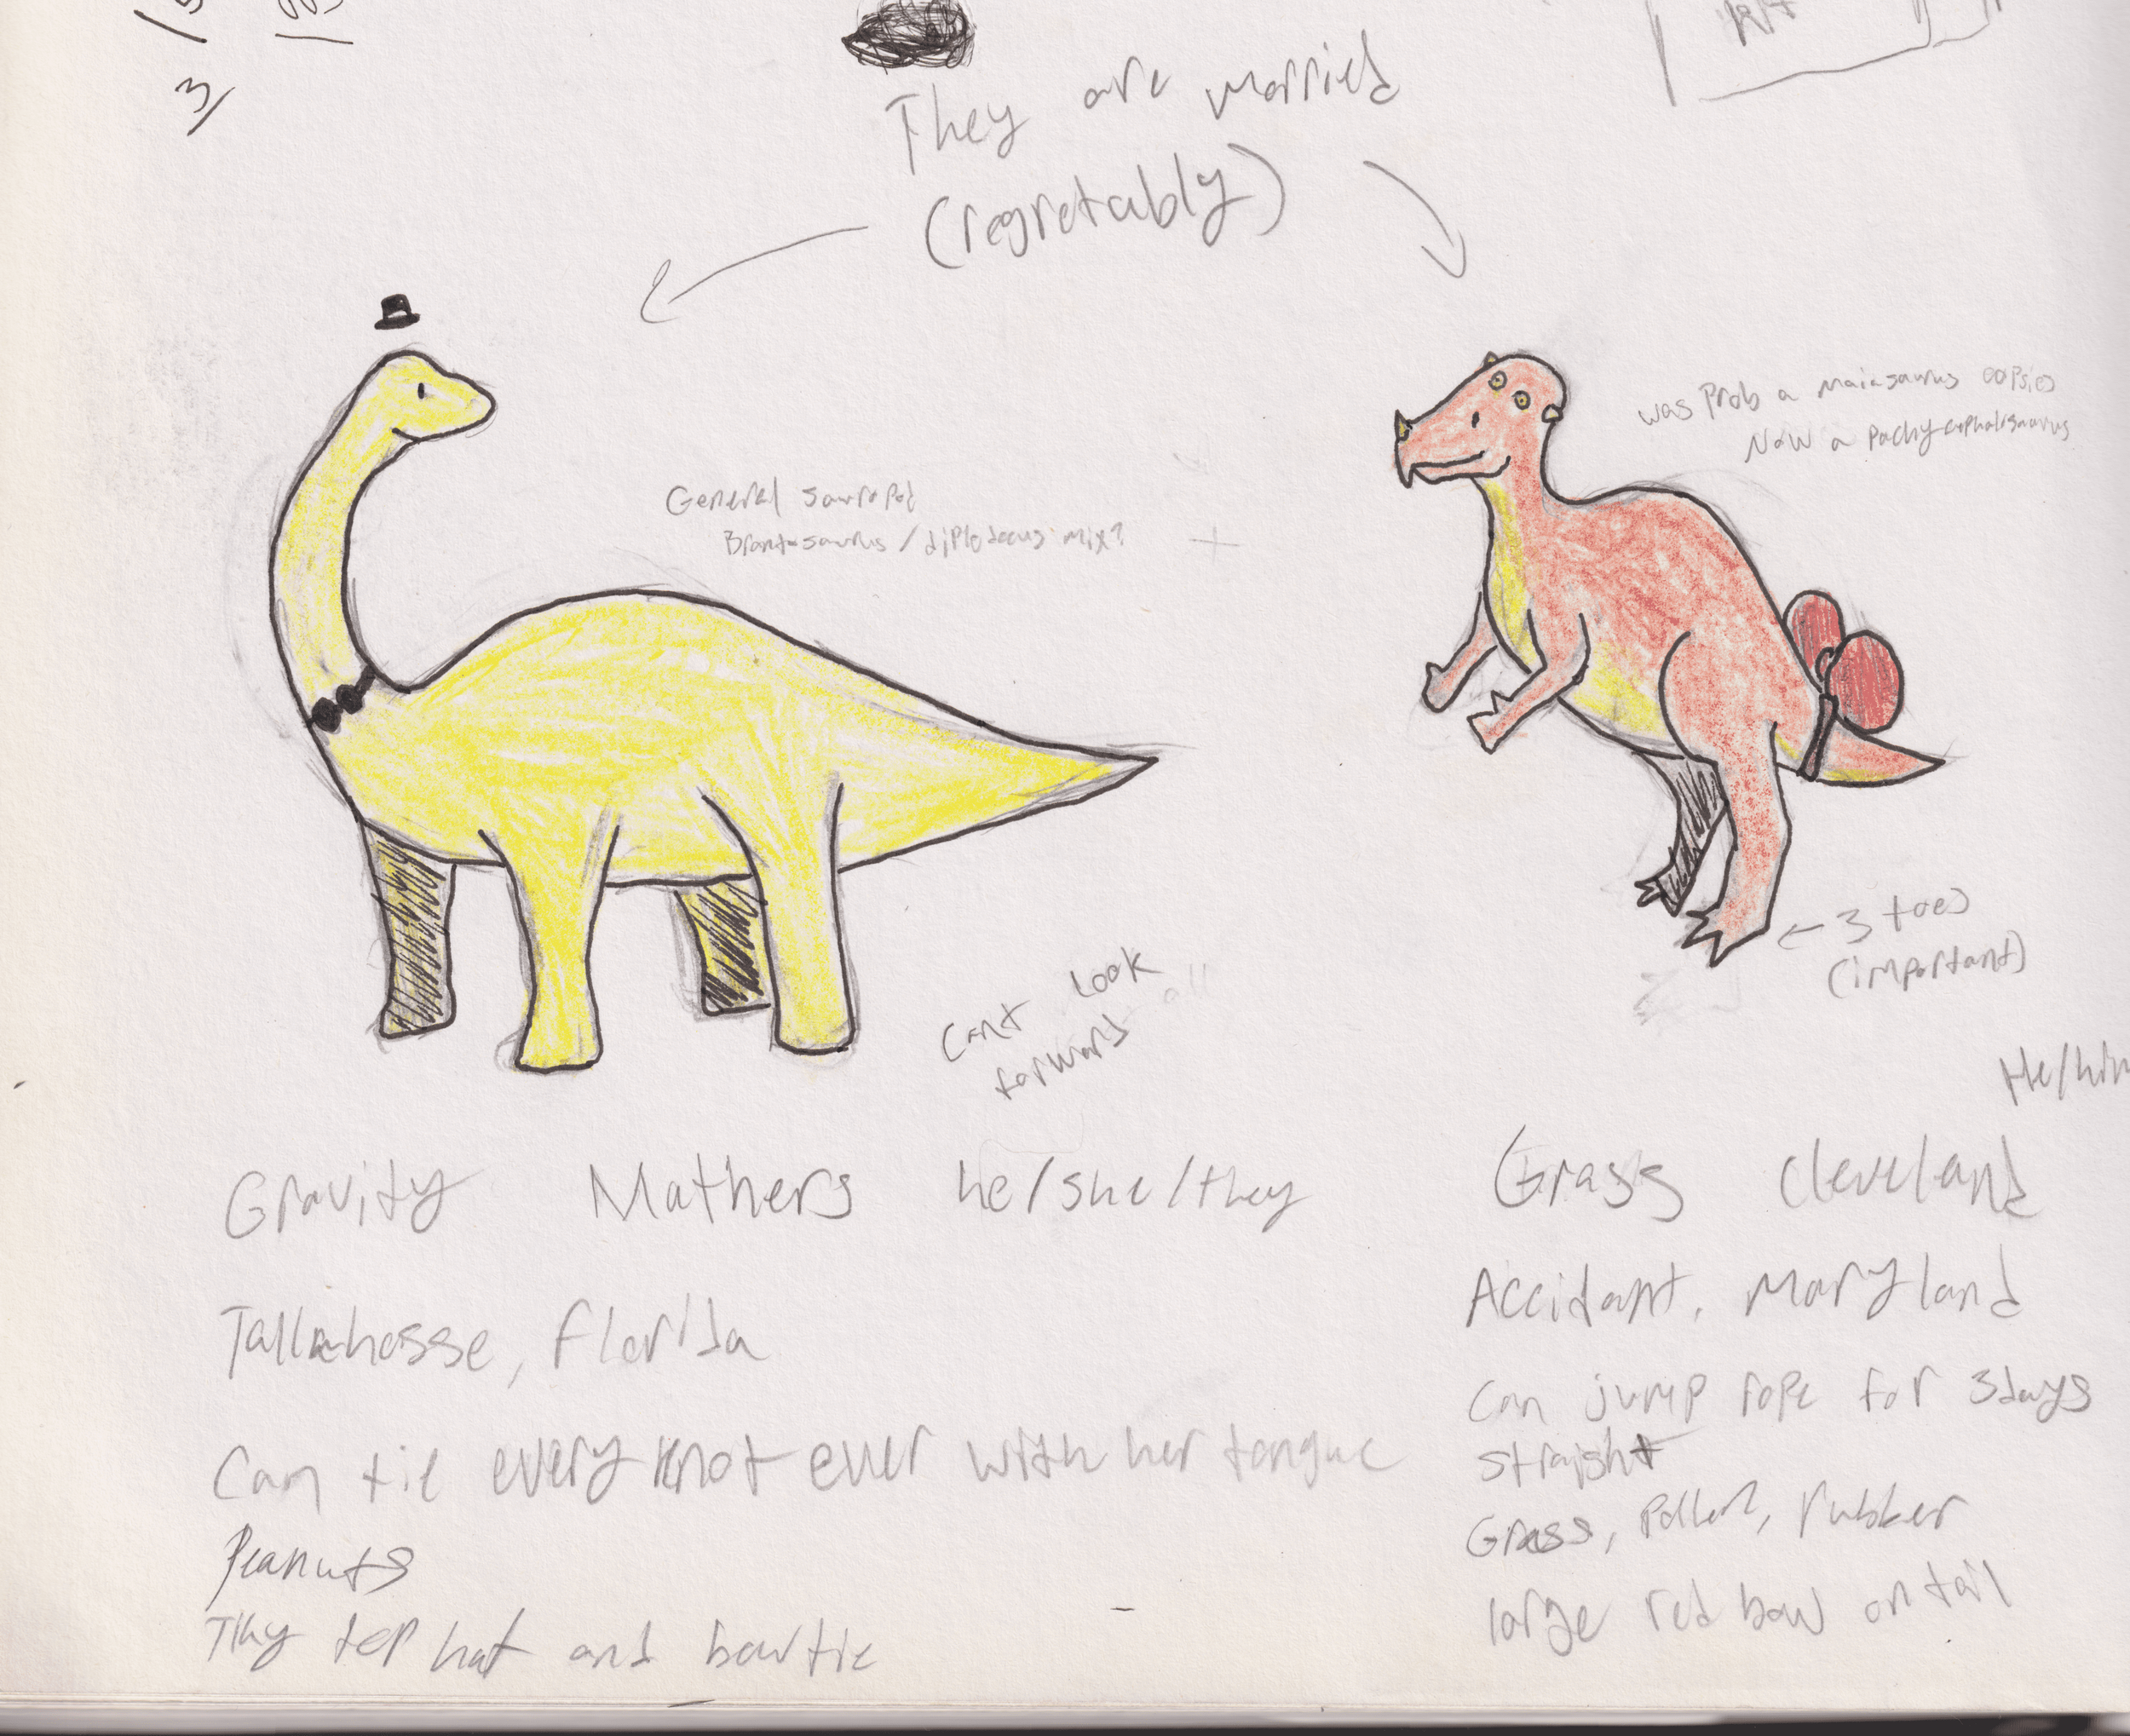 They are married
(regretably)
was prob a maiasaurus oopsies
Now a pachycephalosaurus
General sauropod
Brontosaurus / diplodocus mix?
+
← 3 toes
(important)
Cant look
forward
He/him
Gravity Mathers he/she/they
Tallahasse, Florida
Can tie every knot ever with her tongue
Peanuts
Tiny top hat and bowtie
Grass Cleveland
Accidant, Maryland
Can jump rope for 3 days
straight
Grass, Pollen, rubber
large red bow on tail